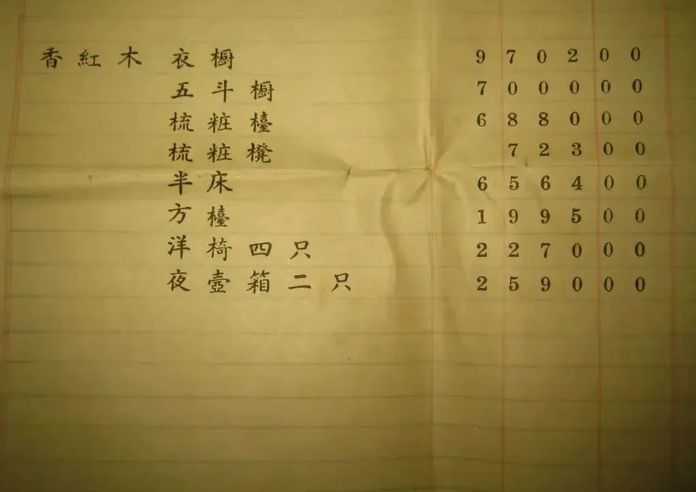 香紅木 衣橱 970200
五斗橱 700000
梳粧檯 688000
梳粧櫈 72300
半床 656400
方檯 199500
洋椅四只 227000
夜壺箱二只 259000